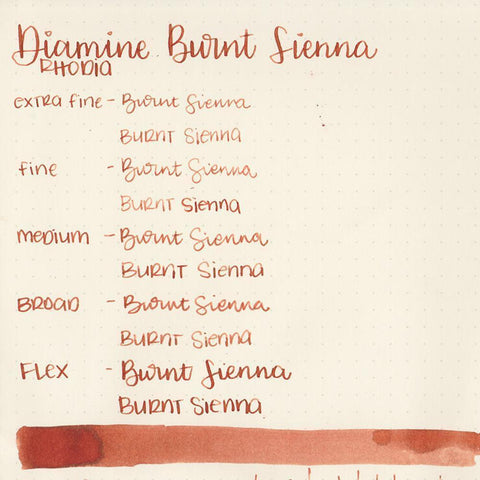 Diamine Burnt Sienna
RHODIA
extra fine - Burnt Sienna
BURNT SIENNA
fine - Burnt Sienna
BURNT SIENNA
medium - Burnt Sienna
BURNT SIENNA
BROAD - Burnt Sienna
BURNT SIENNA
FLEX - Burnt Sienna
BURNT SIENNA